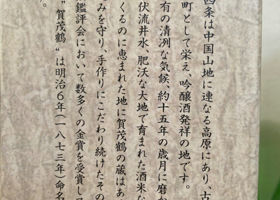 西条は中国山地に連なる高原にあり、古
町として栄え、吟醸酒発祥の地です。
有の清冽な気候、約十五年の歳月に磨か
伏流井水、肥沃な大地で育まれた酒米な
くるのに恵まれた地に賀茂鶴の蔵はあ
みを守り、手作りにこだわり続けたその
鑑評会において数多くの金賞を受賞し
"賀茂鶴"は明治6年(一八七三年)命名
す。